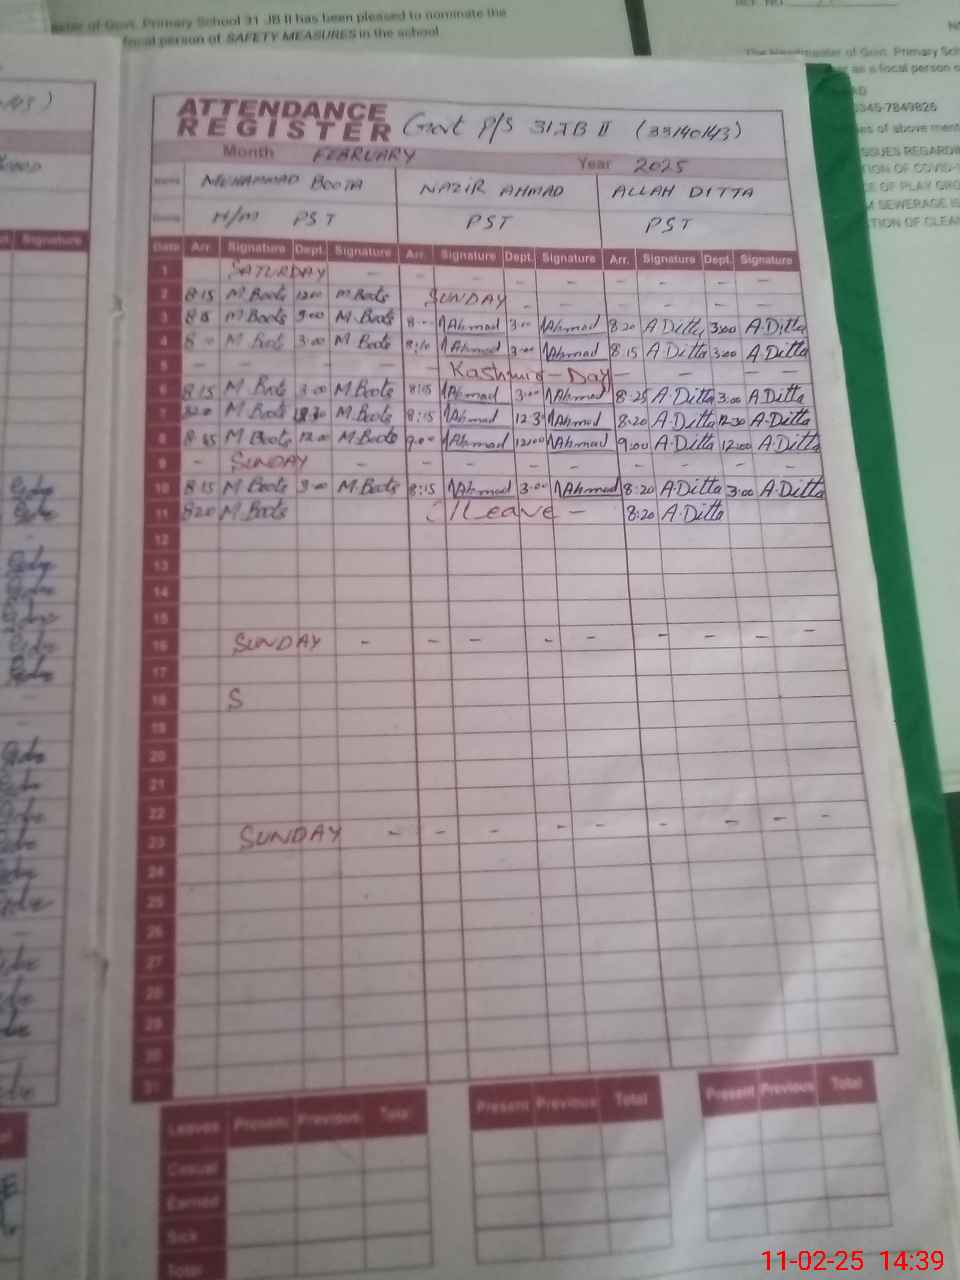 of Govt. Primary School 31 JB II has been pleased to nominate the
focal person of SAFETY MEASURES in the school
The Headmaster of Govt. Primary
as a focal person
0345-7849826
of above
ISSUES
TION OF COVID-
OF PLAY
SEWERAGE
TION OF CLEAN
Signature
ATTENDANCE
REGISTER Govt P/S 31JB II (33140143)
Month FEBRUARY Year 2025
Name MUHAMMAD BOOTA NAZIR AHMAD ALLAH DITTA
H/M PST PST PST
Date Arr. Signature Dept. Signature Arr. Signature Dept. Signature Arr. Signature Dept. Signature
1 SATURDAY - - - - - - - -
2 8:15 M Boota 12:00 M Boota SUNDAY - - - - - -
3 M Boota 3:00 M.Boota 8:00 NAhmad 3:00 NAhmad 8:20 A Ditta 3:00 A.Ditta
4 M Boota 3:00 M Boota 8:10 NAhmad 3:00 NAhmad 8:15 A Ditta 3:00 A.Ditta
5 - - - - - Kashmir - Day - - - -
6 8:15 M Boota 3:00 M Boota 8:15 NAhmad 3:00 NAhmad 8:25 A Ditta 3:00 A Ditta
7 M Boota 12:30 M Boota 8:15 NAhmad 12:3 NAhmad 8:20 A.Ditta 12:30 A.Ditta
8 8:45 M Boota 12:00 M.Boota 9:00 NAhmad 12:00 NAhmad 9:00 A.Ditta 12:00 A.Ditta
9 - SUNDAY - - - - - - - - -
10 8:15 M Boota 3:00 M.Boota 8:15 NAhmad 3:00 NAhmad 8:20 A.Ditta 3:00 A.Ditta
11 8:20 M Boota Leave - 8:20 A.Ditta
12
13
14
15
16 SUNDAY - - - - - - - - -
17
18 S
19
20
21
22
23 SUNDAY - - - - - - - - -
24
25
26
27
28
29
30
31
Leaves Present Previous Total Present Previous Total Present Previous Total
Casual
Earned
Sick
Total
11-02-25 14:39